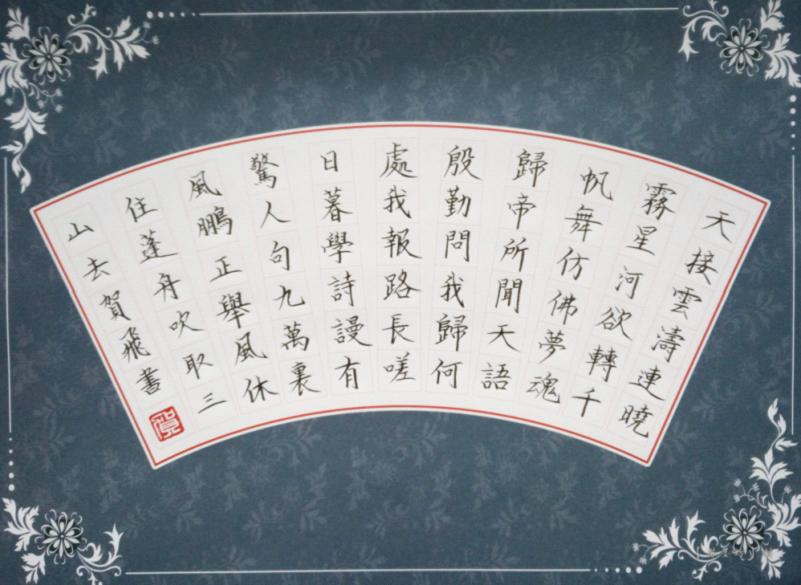 天接雲濤連曉
霧星河欲轉千
帆舞仿佛夢魂
歸帝所聞天語
殷勤問我歸何
處我報路長嗟
日暮學詩謾有
驚人句九萬裏
風鵬正舉風休
住蓬舟吹取三
山去賀飛書